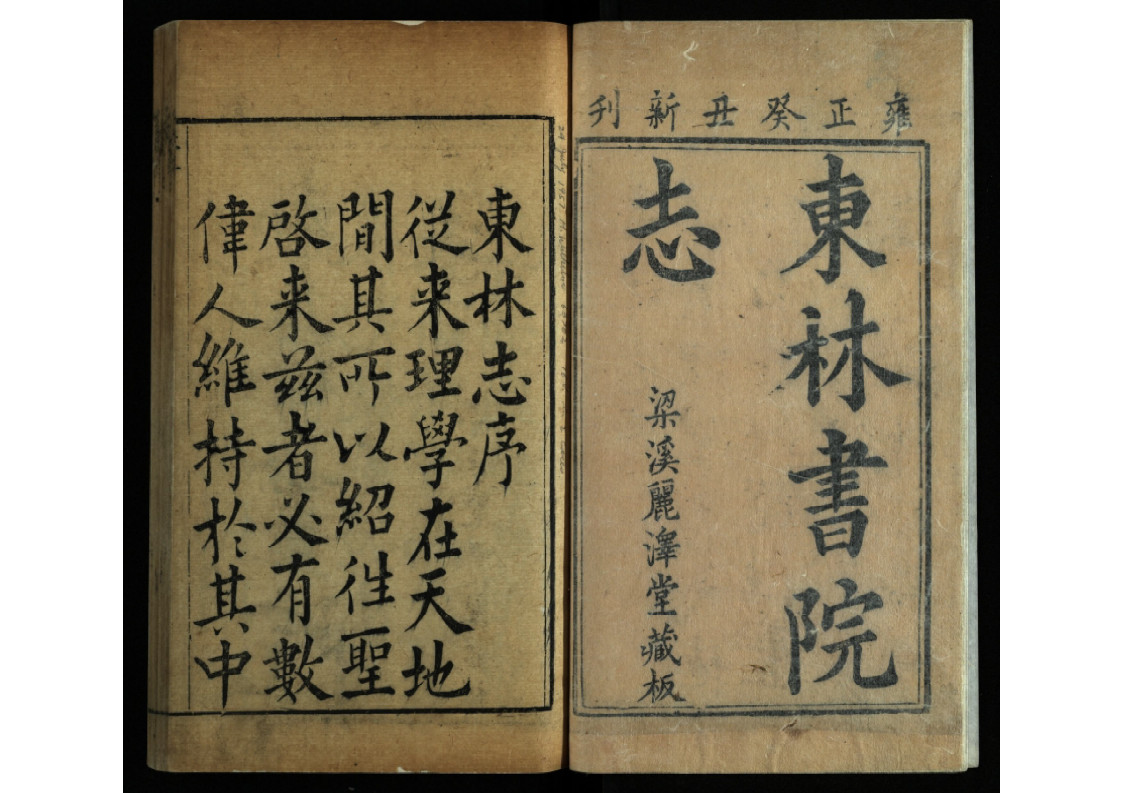 雍正癸丑新刋
東林書院
志
梁溪麗澤堂藏板
東林志序
從来理學在天地
間其所以紹徃聖
啓来兹者必有數
偉人維持於其中